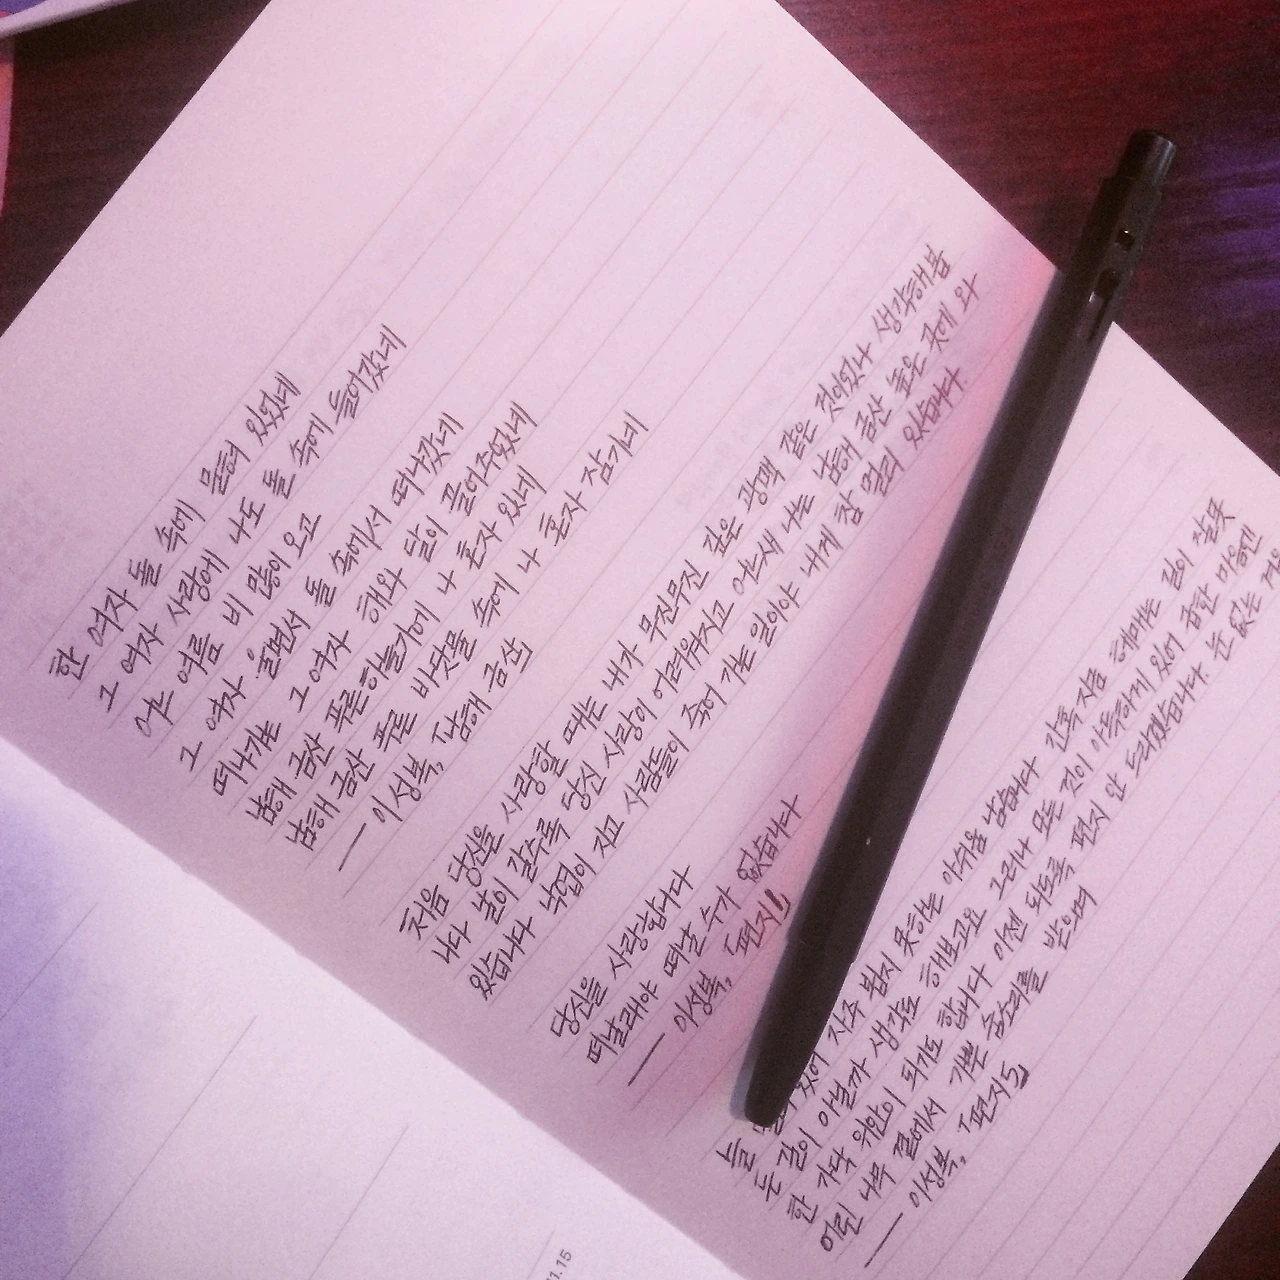 한 여자 돌 속에 묻혀 있었네
그 여자 사랑에 나도 돌 속에 들어갔네
어느 여름 비 많이 오고
그 여자 울면서 돌 속에서 떠나갔네
떠나가는 그 여자 해와 달이 끌어주었네
남해 금산 푸른 하늘가에 나 혼자 있네
남해 금산 푸른 바닷물 속에 나 혼자 잠기네
— 이성복, 「남해 금산
처음 당신을 사랑할 때는 내가 무진무진 깊은 광맥 같은 것이었나 생각해봅
니다 날이 갈수록 당신 사랑이 어려워지고 어느새 나는 남해 금산 높은 곳에 와
있습니다 낙엽이 지고 사람들이 죽어 가는 일이야 내게 참 멀리 있습니다
당신을 사랑합니다
떠날래야 떠날 수가 없습니다
— 이성복, 「편지1」
늘 있어 자주 뵙지 못하는 아쉬움 남습니다 간혹 지금 헤매는 길이 잘못
든 길이 아닐까 생각도 해보고요 그러나 모든 것이 아득하게 있어 급한 마음엔
한 가닥 위안이 되기도 합니다 이젠 되도록 편지 안 드리겠습니다 눈 없는
어린 나무 곁에서 기쁜 숨소리를 받으며
— 이성복, 「편지5」
11.15